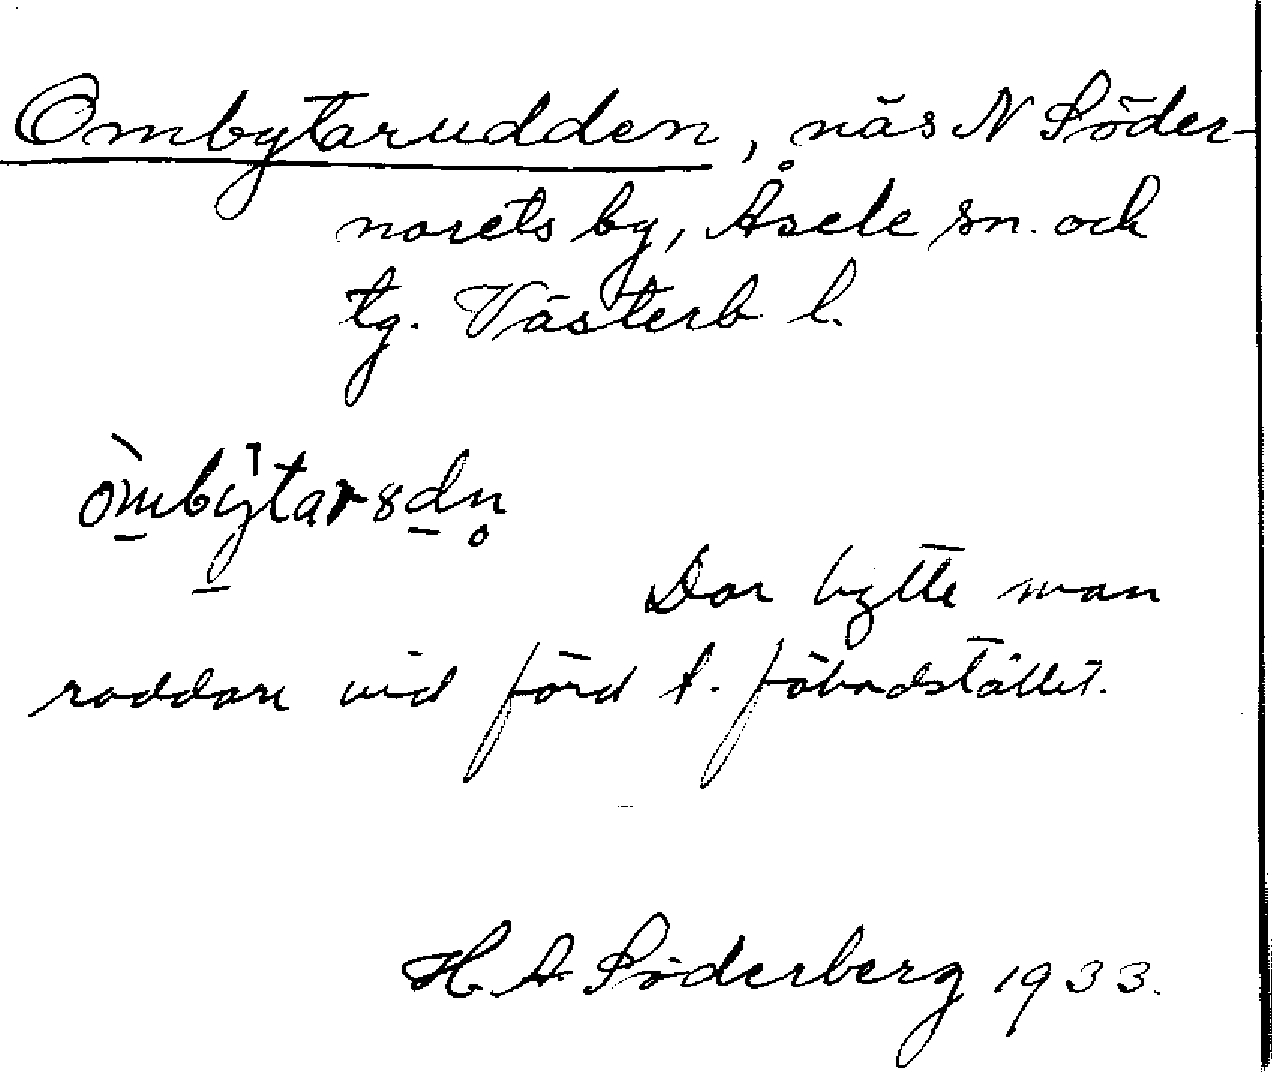 Ombytarudden, näs N Söder-
norets by, Åsele sn. och
tg. Västerb l.
òmbytarsdn
Där bytte man
roddare vid färd t. fäbodstället.
H. A Söderberg 1933.